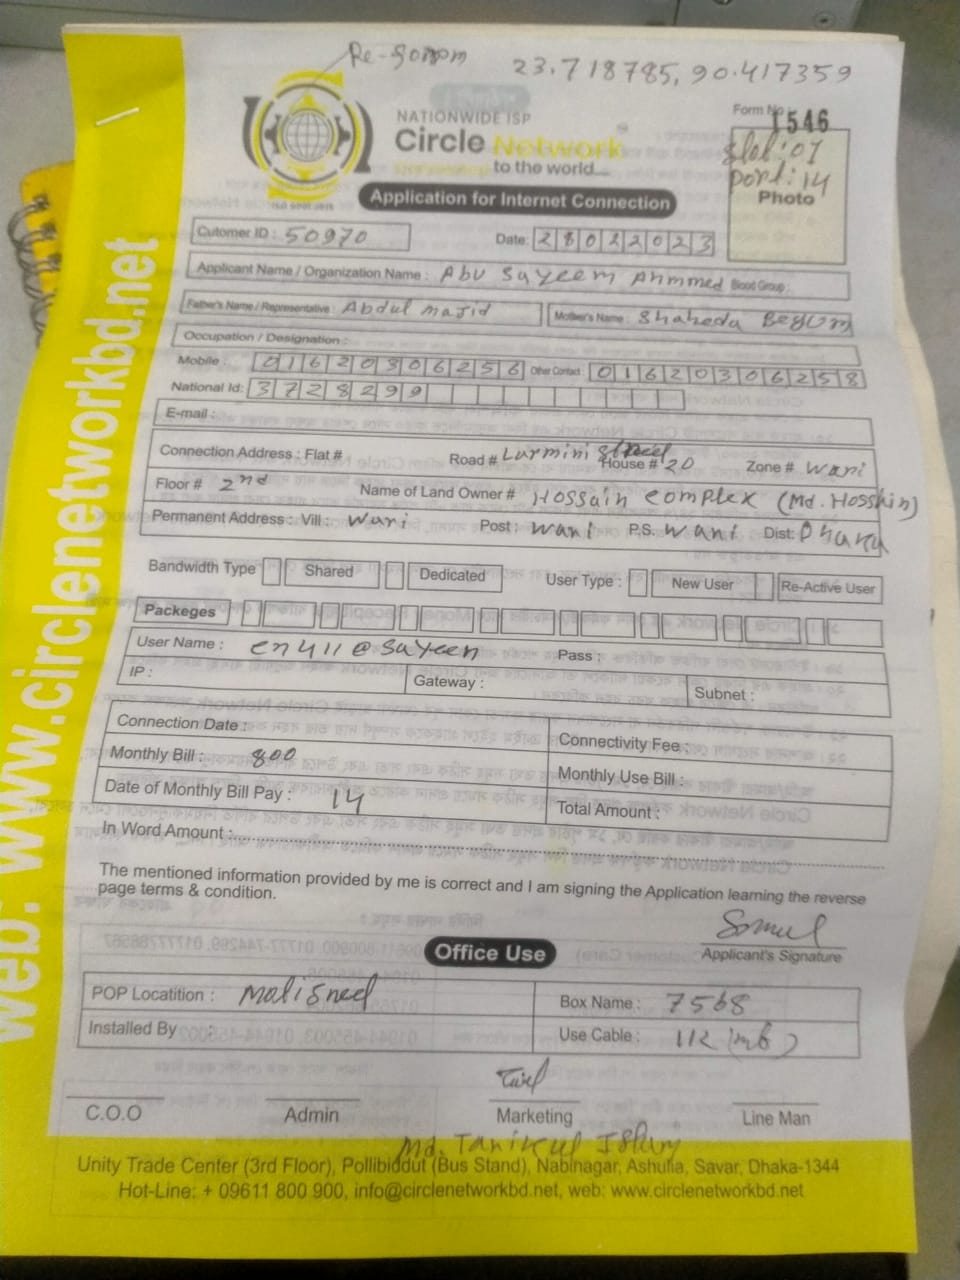 Re-
23.718785, 90.417359
NATIONWIDE ISP
Circle Network
to the world...
Form No. 1546
Slot: 07
port: 14
Photo
ISO 9001:2015
Application for Internet Connection
Cutomer ID : 50970
Date: 28022023
Applicant Name / Organization Name : Abu Sayeem Ahmmed Blood Group :
Father's Name / Representative : Abdul Majid Mother's Name : Shaheda Begum
Occupation / Designation :
Mobile : 01620306256 Other Contact 01620306258
National Id: 3728299
E-mail :
Connection Address : Flat # Road # Larmini Street House # 20 Zone # Wari
Floor # 2nd Name of Land Owner # Hossain complex (Md. Hosshin)
Permanent Address : Vill : Wari Post : Wari P.S. Wari Dist: Dhaka
Bandwidth Type Shared Dedicated User Type : New User Re-Active User
Packeges
User Name : cn411@sayeen Pass :
IP : Gateway : Subnet :
Connection Date : Connectivity Fee :
Monthly Bill : 800 Monthly Use Bill :
Date of Monthly Bill Pay : 14 Total Amount :
In Word Amount :
The mentioned information provided by me is correct and I am signing the Application learning the reverse
page terms & condition.
Applicant's Signature
Office Use
POP Locatition : Box Name : 7568
Installed By Use Cable : 112 (mb)
C.O.O Admin Marketing Line Man
Md. Tanikul Islam
Unity Trade Center (3rd Floor), Pollibiddut (Bus Stand), Nabinagar, Ashulia, Savar, Dhaka-1344
Hot-Line: + 09611 800 900, info@circlenetworkbd.net, web: www.circlenetworkbd.net
web: www.circlenetworkbd.net